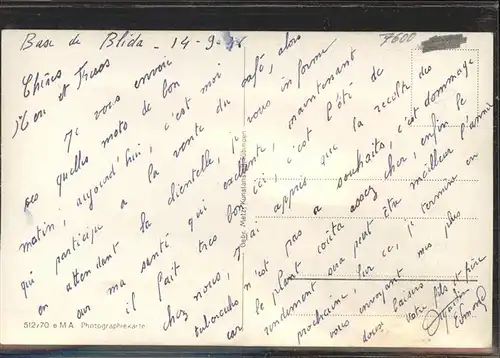 Base de Blida - 14-9-
7600
Chères
Men et Frères
Je vous envoie
ces quelques mots de bon
matin, aujourd'hui, c'est moi
qui participe a la vente du café, alors
en attendant la clientelle, je vous informe
sur ma santé qui excellente, maintenant
il fait très bon ici, c'est l'été de
chez nous, J'ai appris que la récolte des
tubercules n'est pas a souhaits, c'est dommage
car le plant coûta assez cher, enfin le
rendement sera peut être meilleur l'année
prochaine, sur ce, je termine en
vous envoyant mes plus
doux baisers
votre fils et frère
Gebr. Metz, Kunstanstalt, Tübingen
512/70 e M A Photographiekarte